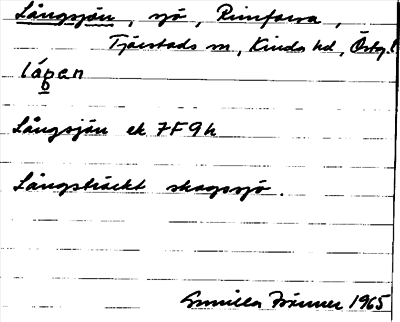 Långsjön, sjö, Rimforsa,
Tjärstads sn, Kinda hd, Östg.l.
Långsjön ek 7F9h
Långsträckt skogssjö.
Gunilla 1965